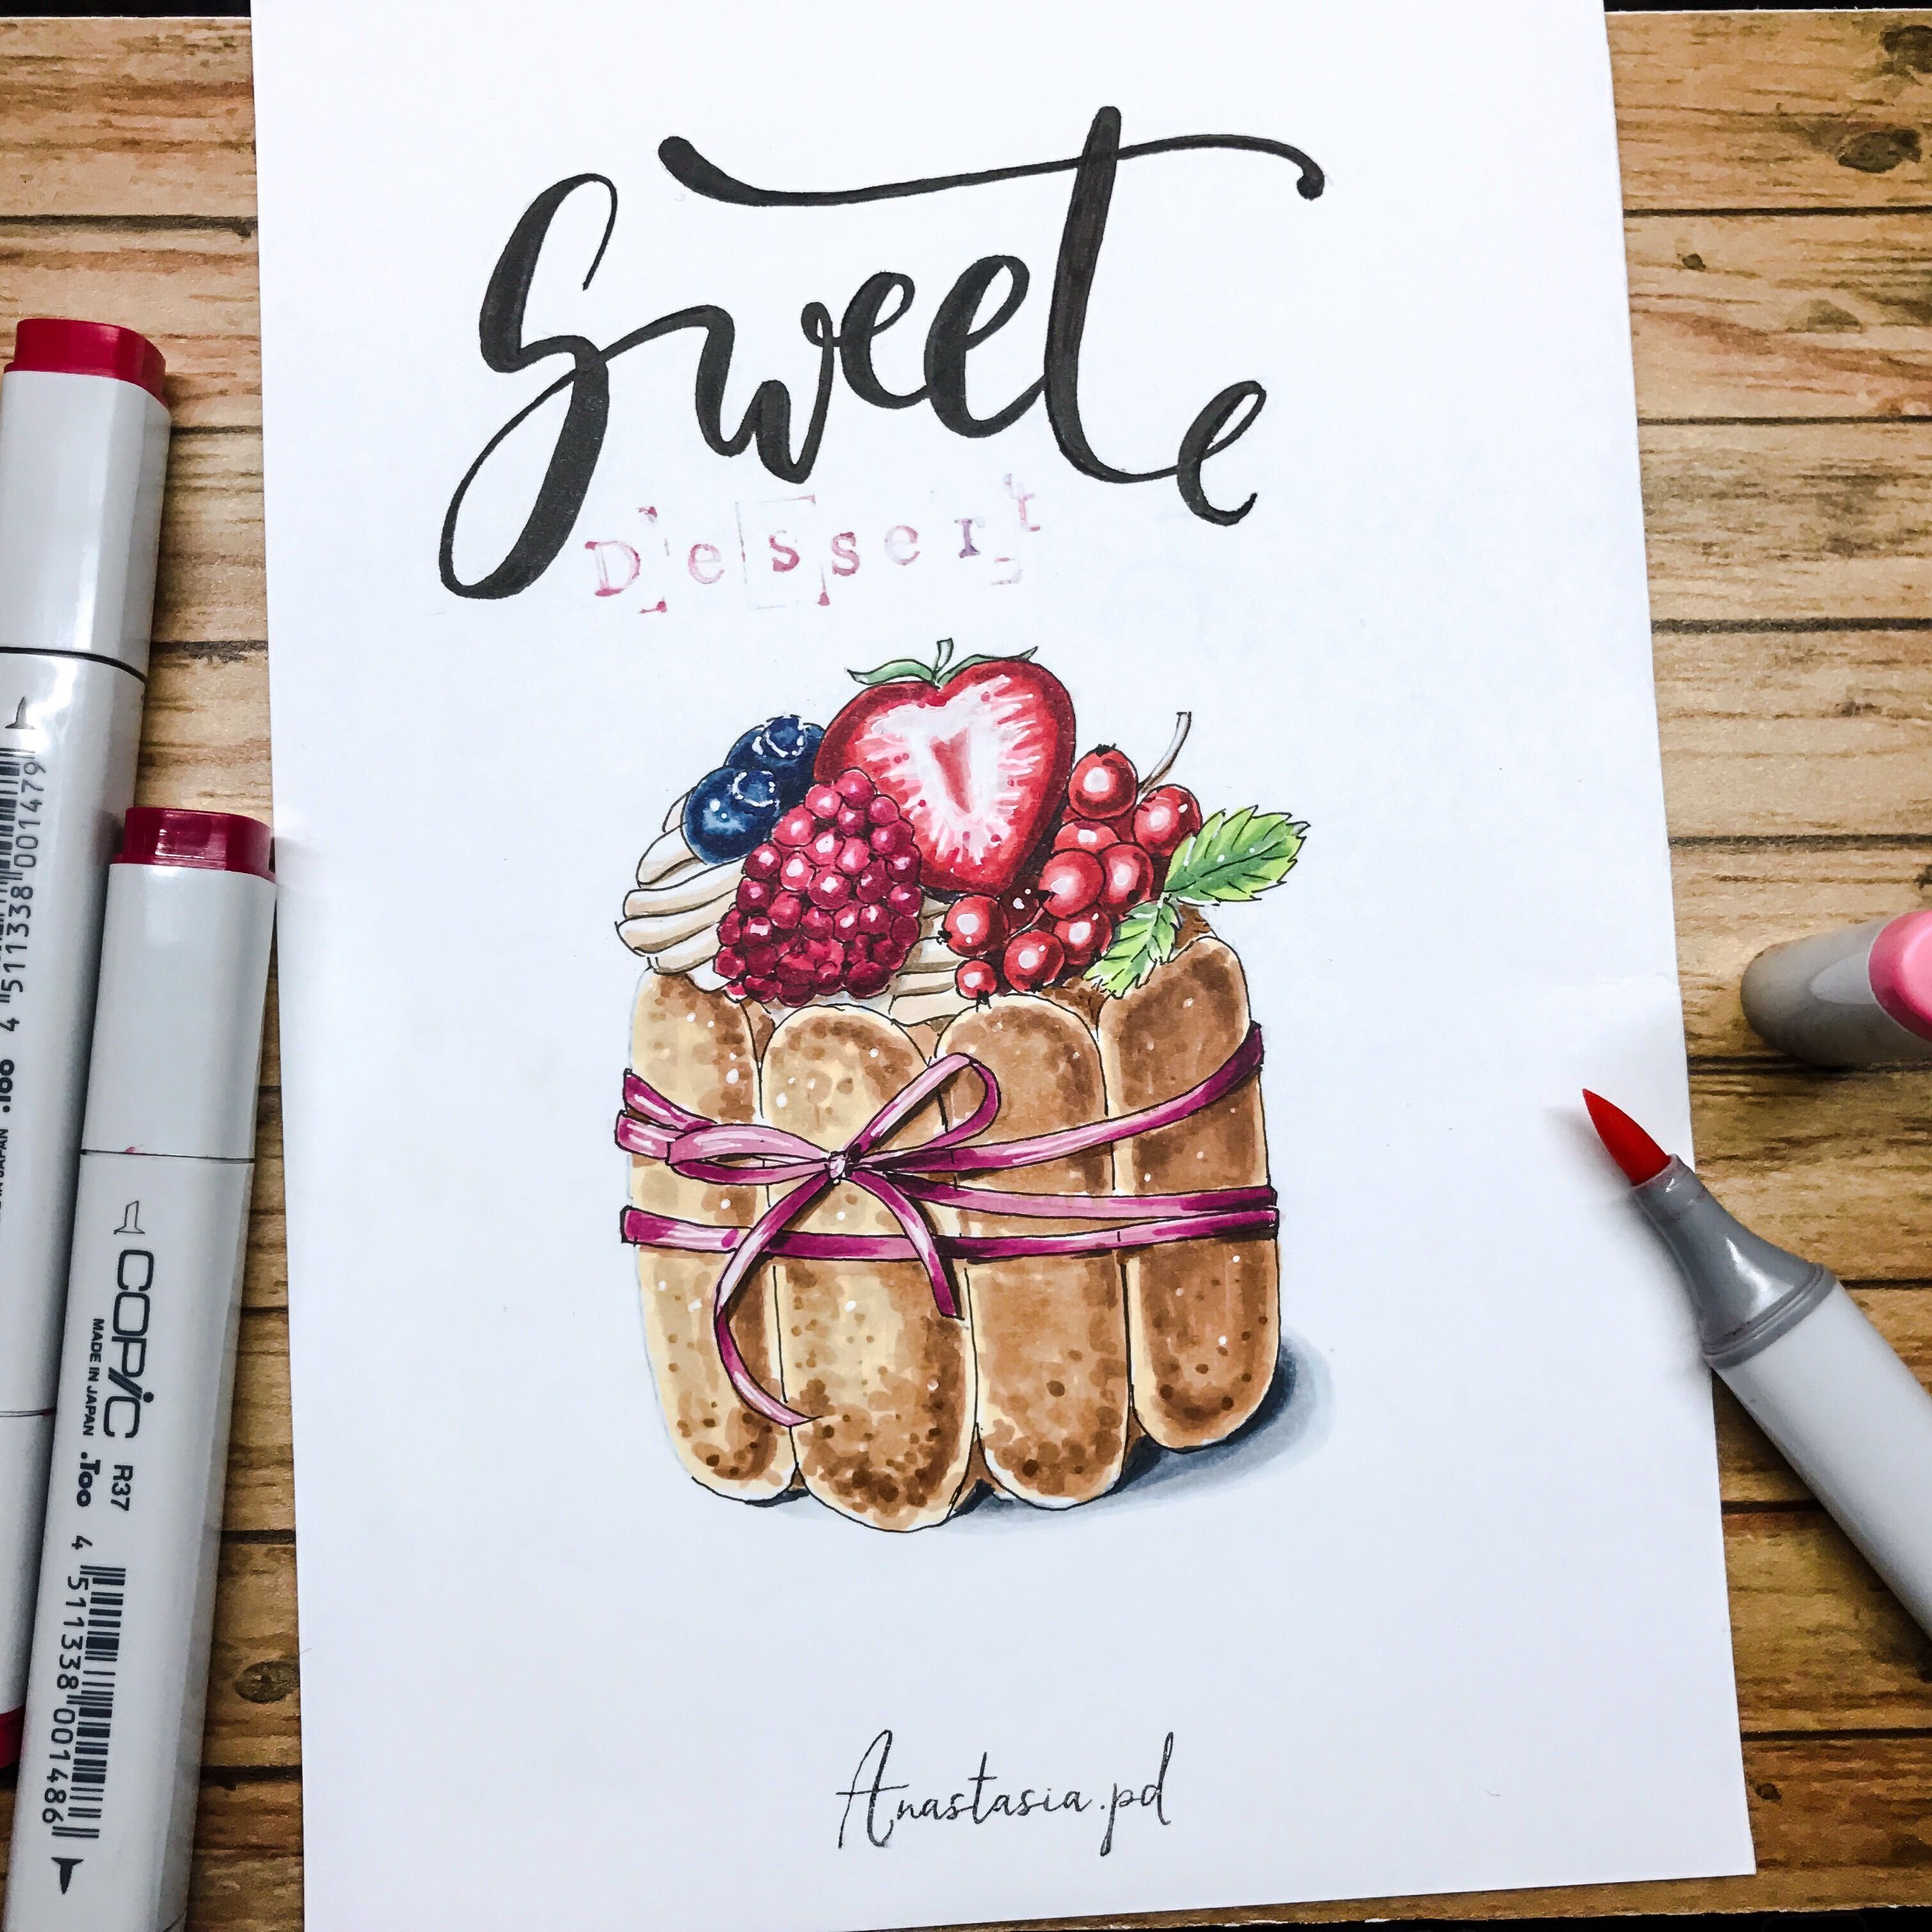 Sweet
Dessert
Anastasia.pd
4 511338 001479
.Too
COPIC
MADE IN JAPAN
.Too
R37
4 511338 001486